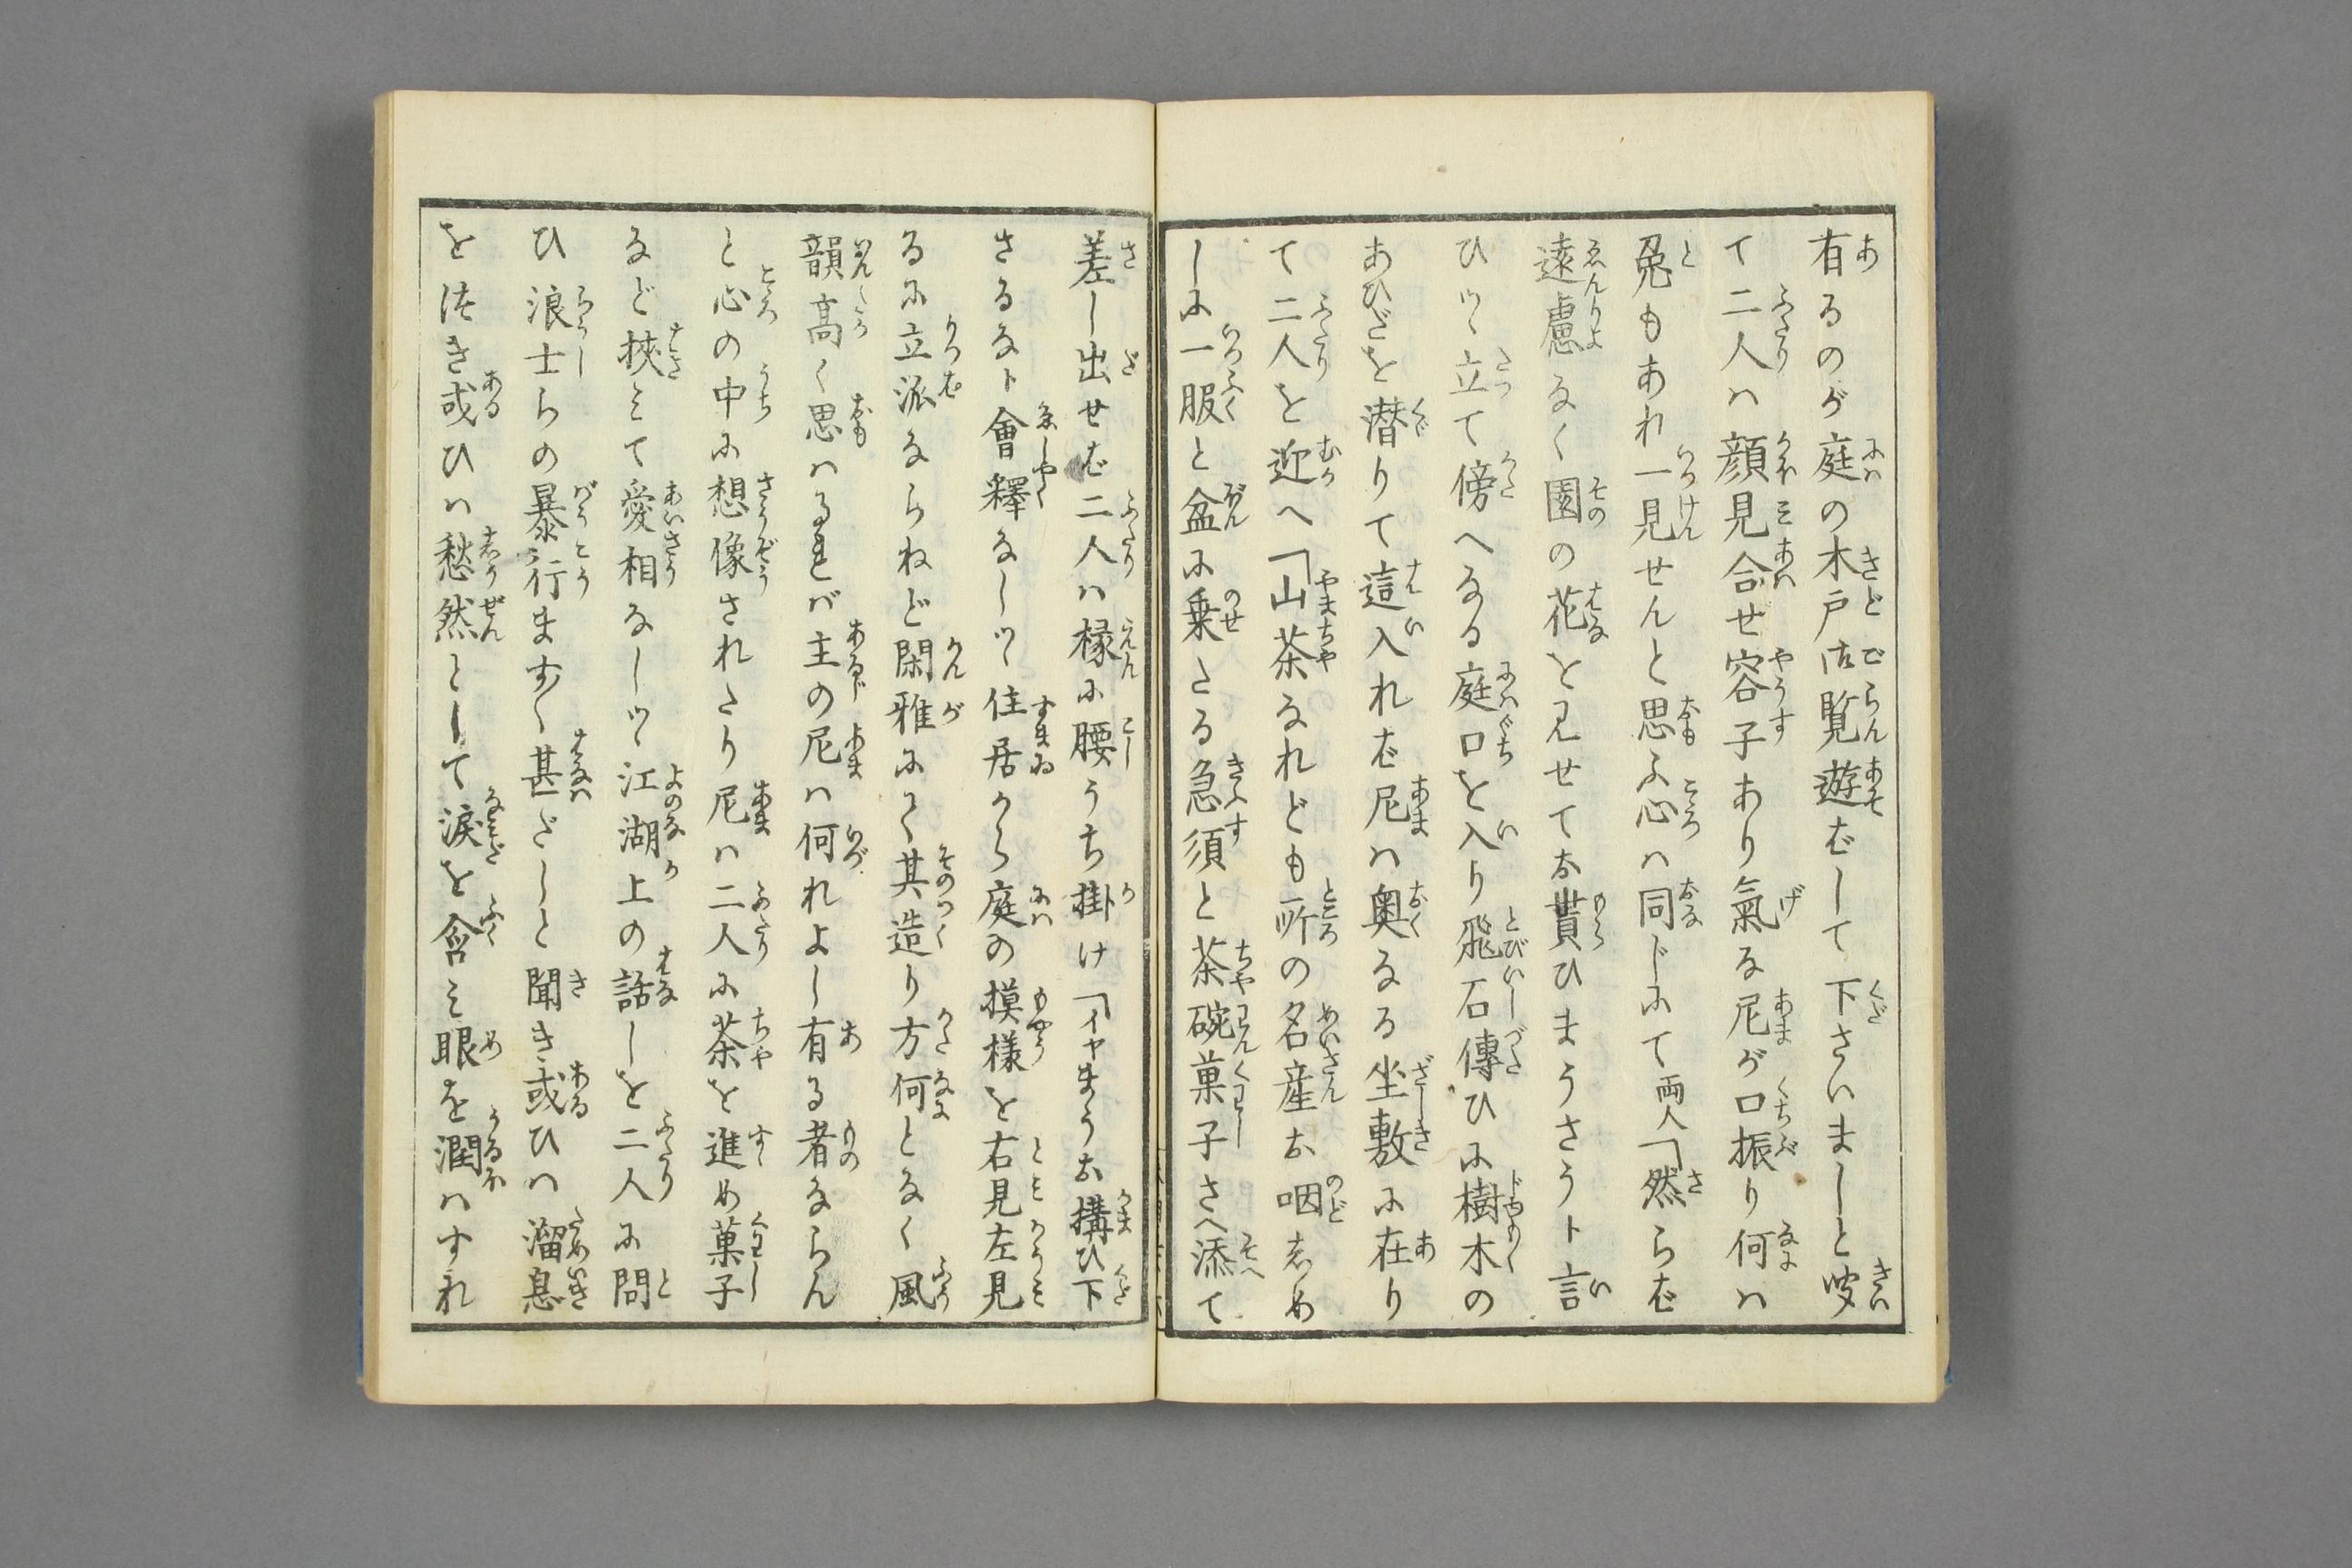 有るのが庭の木戸御覧遊ばして下さいましと咬
て二人ハ顔見合せ容子あり氣な尼が口振り何ハ
兎もあれ一見せんと思ふ心ハ同じにて両人「然らば
遠慮なく園の花を見せてお貰ひまうさうト言
ひツヽ立て傍へなる庭口を入り飛石傳ひに樹木の
あひだを潜りて這入れば尼ハ奥なる坐敷に在り
て二人を迎へ「山茶なれども所の名産お咽志め
しに一服と盆に乗たる急須と茶碗菓子さへ添て
差し出せば二人ハ椽に腰うち掛け「イヤまうお搆ひ下
さるなト會釋なしツヽ住居から庭の摸様を右見左見
るに立派ならねど閑雅にて其造り方何となく風
韻高く思ハるれバ主の尼ハ何れよし有る者ならん
と心の中に想像されたり尼ハ二人に茶を進め菓子
など挾ミて愛相なしツヽ江湖上の話しを二人に問
ひ浪士らの暴行ます〱甚だしと聞き或ひハ溜息
を吐き或ひハ愁然として涙を含ミ眼を潤ハすれ